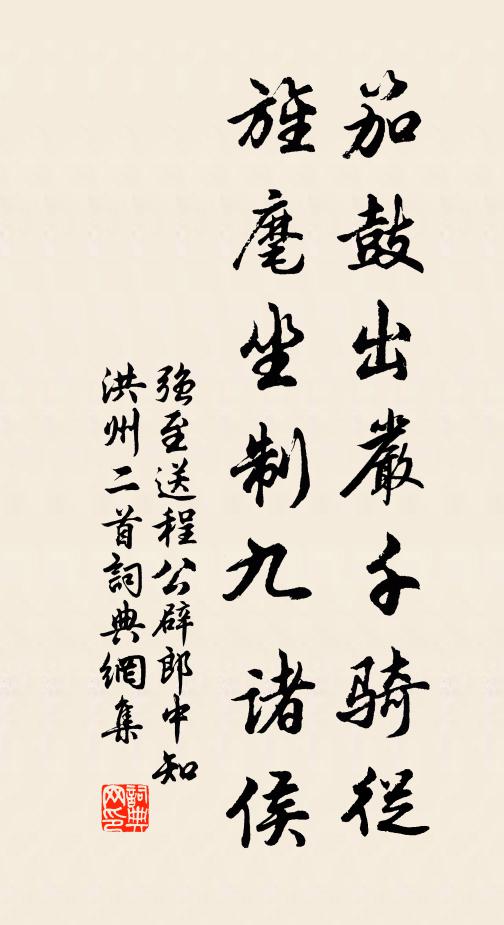 笳鼓出嚴千騎從
旌麾坐制九諸侯
强至送程公辟郎中知
洪州二首詞典網集
詞典
网印